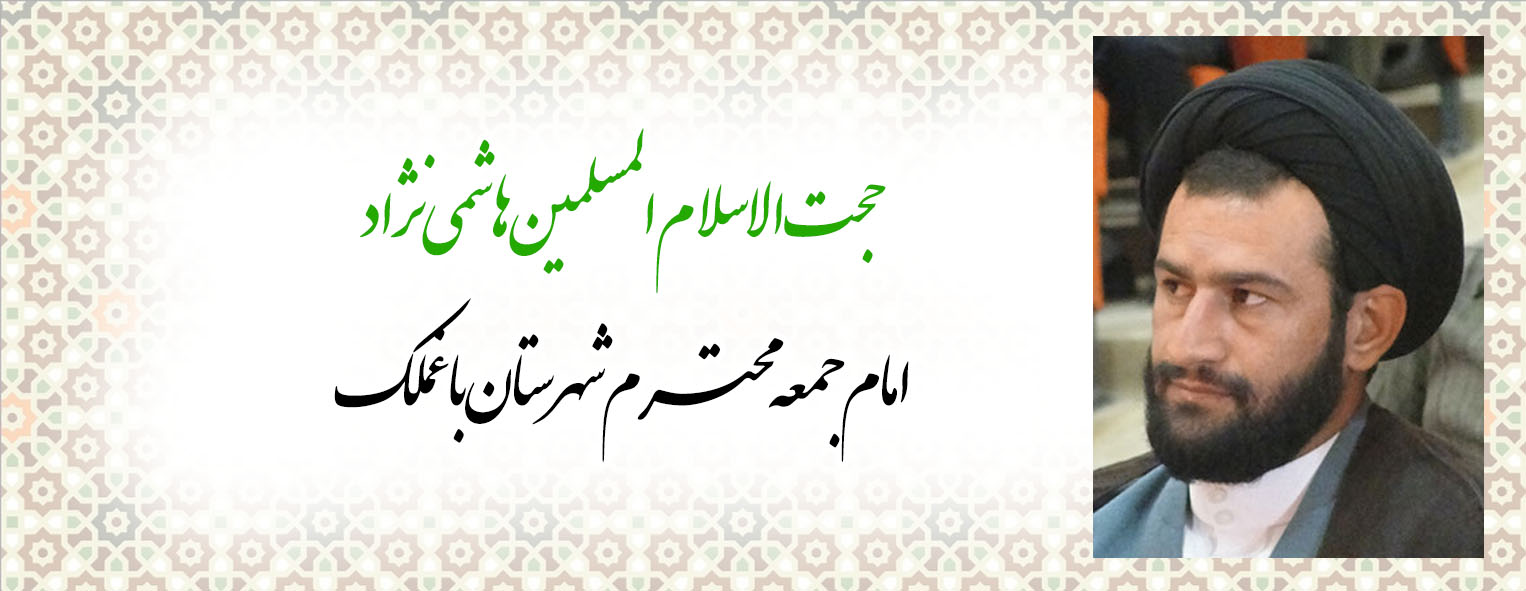 حجت الاسلام المسلمین هاشمی نژاد
امام جمعه محترم شهرستان باغملک